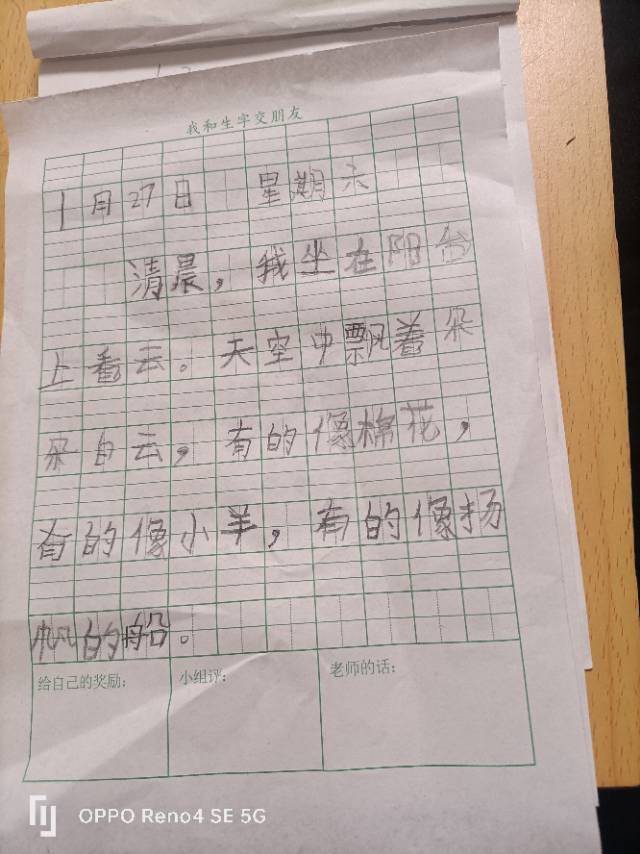 我和生字交朋友
1月27日 星期六
清晨，我坐在阳台
上看云。天空中飘着朵
朵白云，有的像棉花，
有的像小羊，有的像扬
帆的船。
给自己的奖励：
小组评：
老师的话：
OPPO Reno4 SE 5G